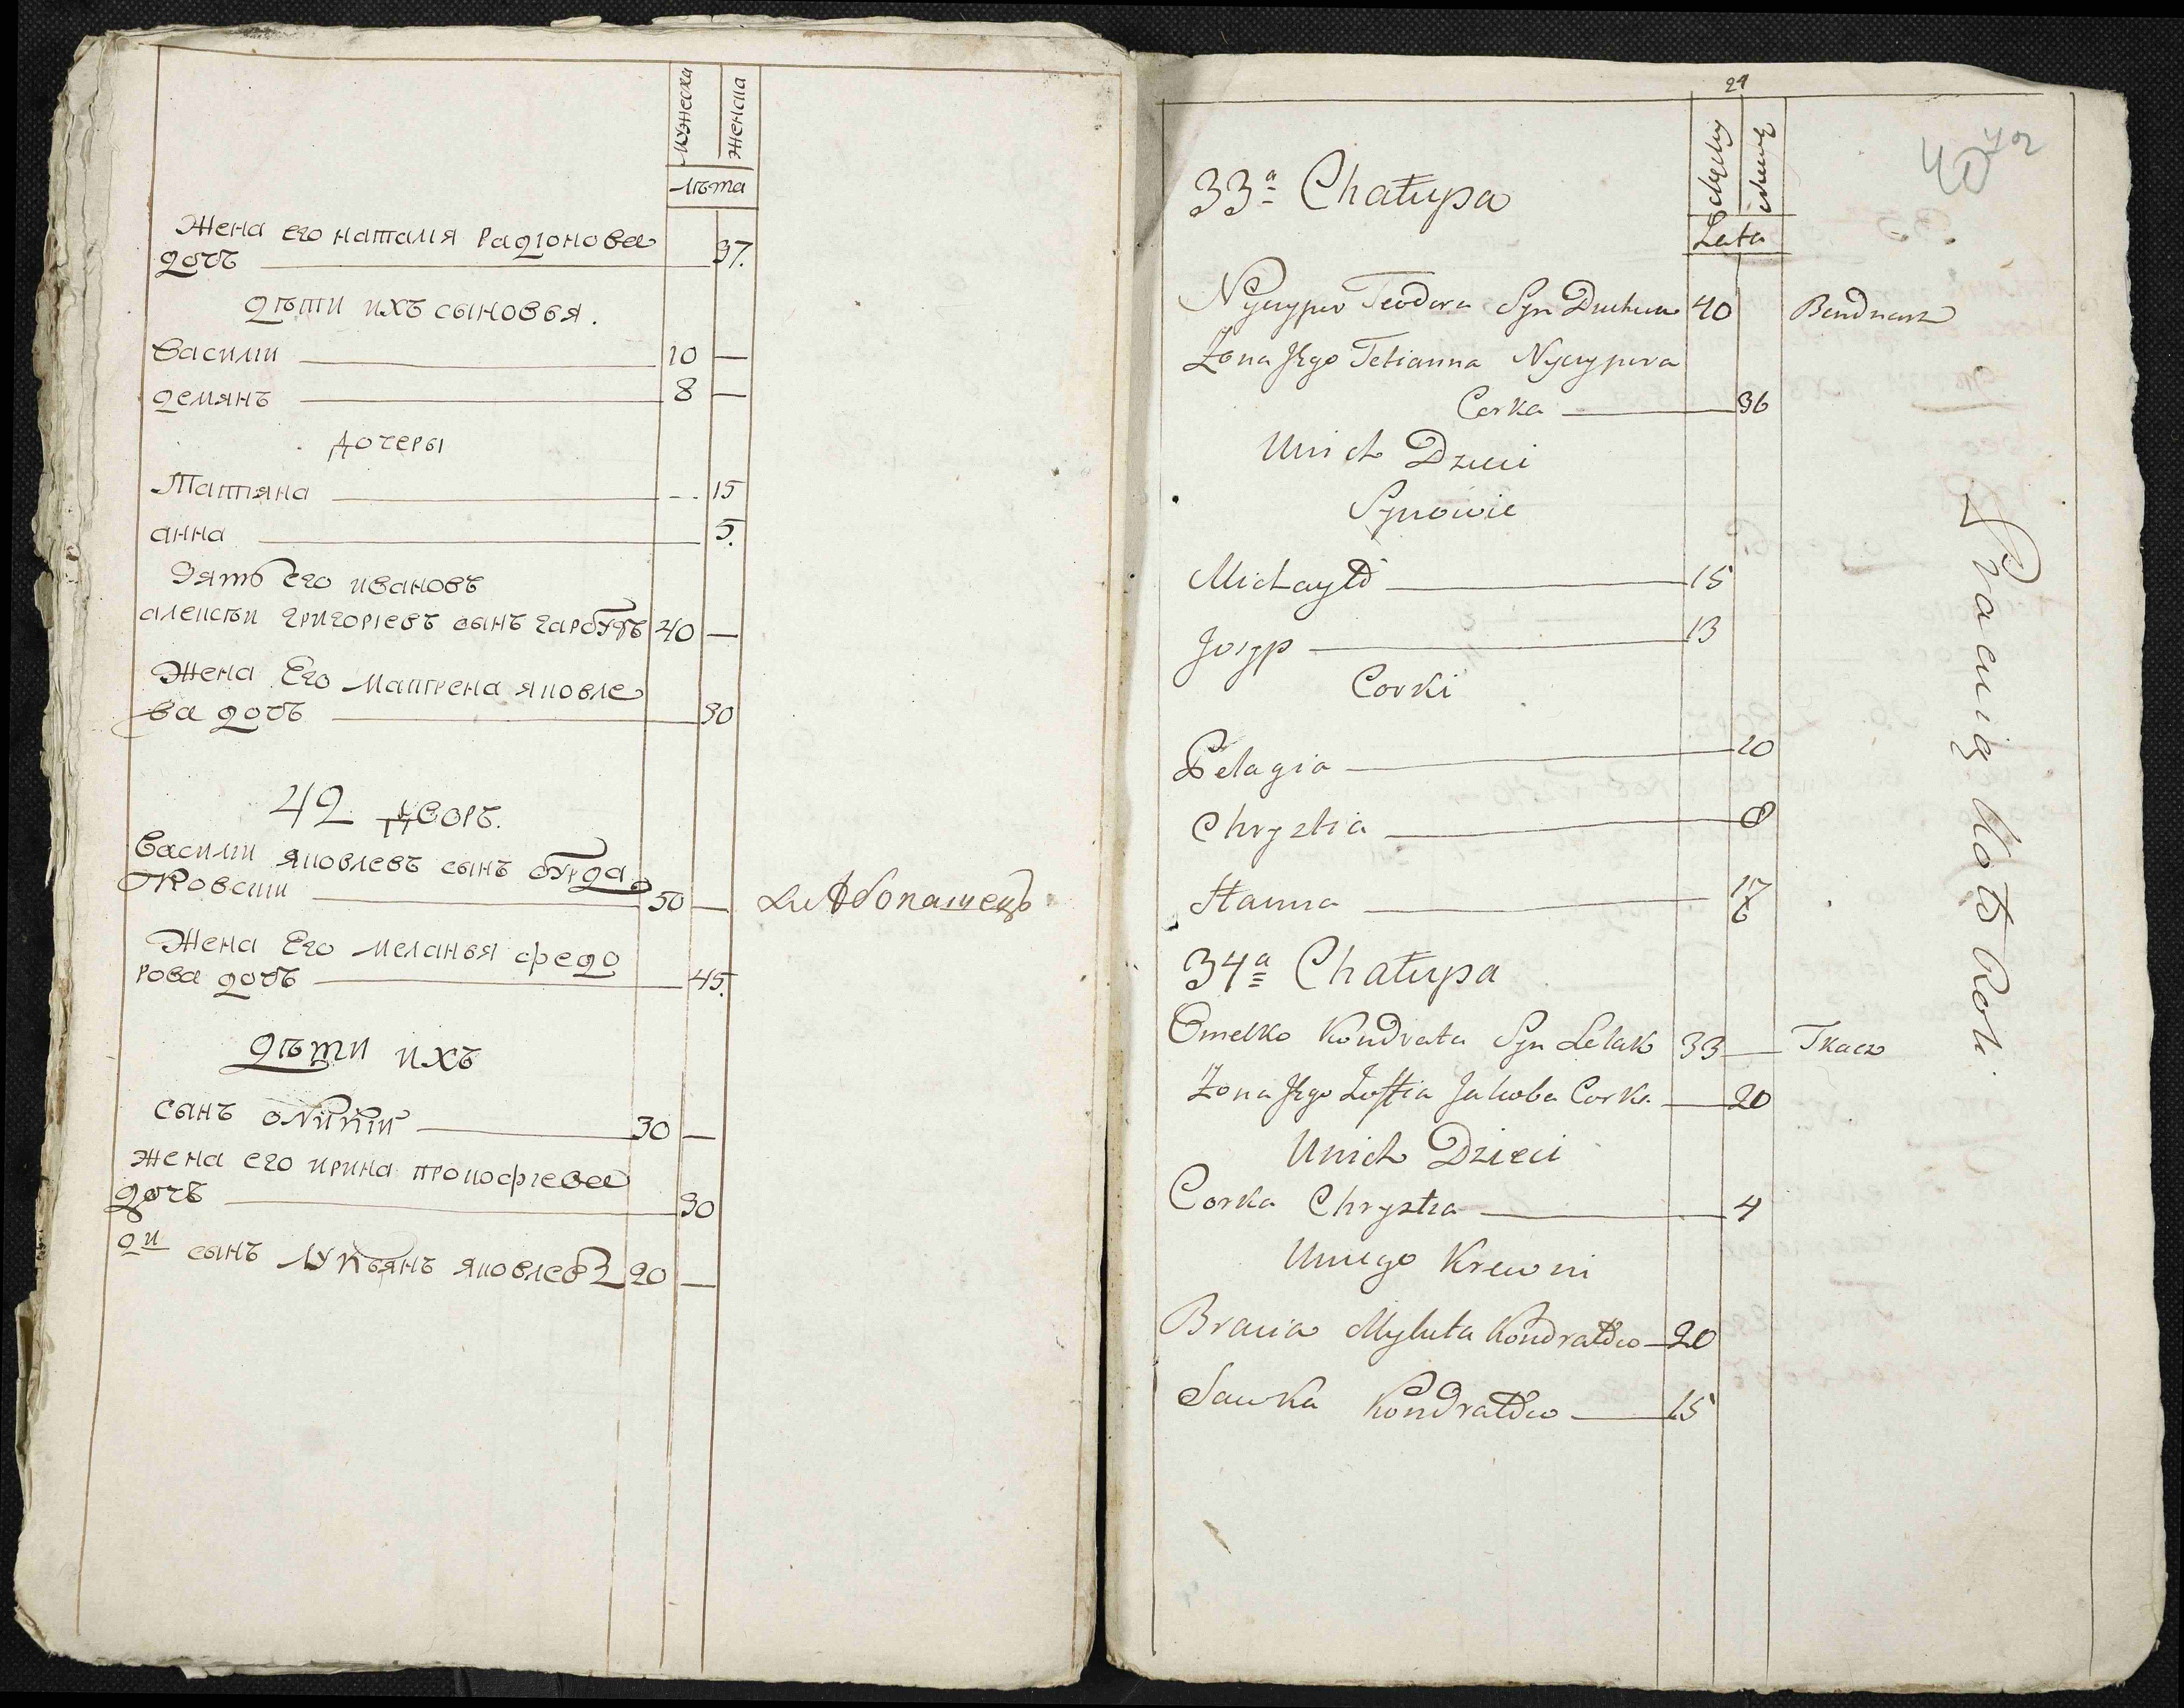 мужеска женска
лѣта
Жена его наталия Радионова
дочъ 37.
дѣти ихъ сыновья.
Василий 10 —
демянъ 8 —
дочеры
Татияна 15
анна 5.
Зять его ивановъ
алексѣй григориевъ сынъ 40 —
Жена Его матрена яковле
ва дочъ 30
42 дворъ.
Василий яковлевъ сынъ
ковский 50 — хлѣбопашецъ
Жена Его меланья федо
рова дочъ 45.
дѣти ихъ
сынъ 30 —
жена его ирина прокофиева
дочъ 30
2й сынъ лукьянъ яковлевъ 20 —
21
40
33a Chałupa
Lata
Nyczypor Teodora Syn 40 Bendnarz
Zona Jego Tetianna Nyczypora
Corka 36
Unich Dzieci
Synowie
Michayło 15
Josyp 13
Corki
Pelagia 10
Chrystia 8
Hanna
34a Chałupa
Omelko Kondrata Syn Lelak 33 — Tkacz
Zona Jego Zofia Jakoba Corka 20
Unich Dzieci
Corka Chrystia 4
Uniego Krewni
Bracia Mykita Kondratów 20
Sawka Kondratów 15